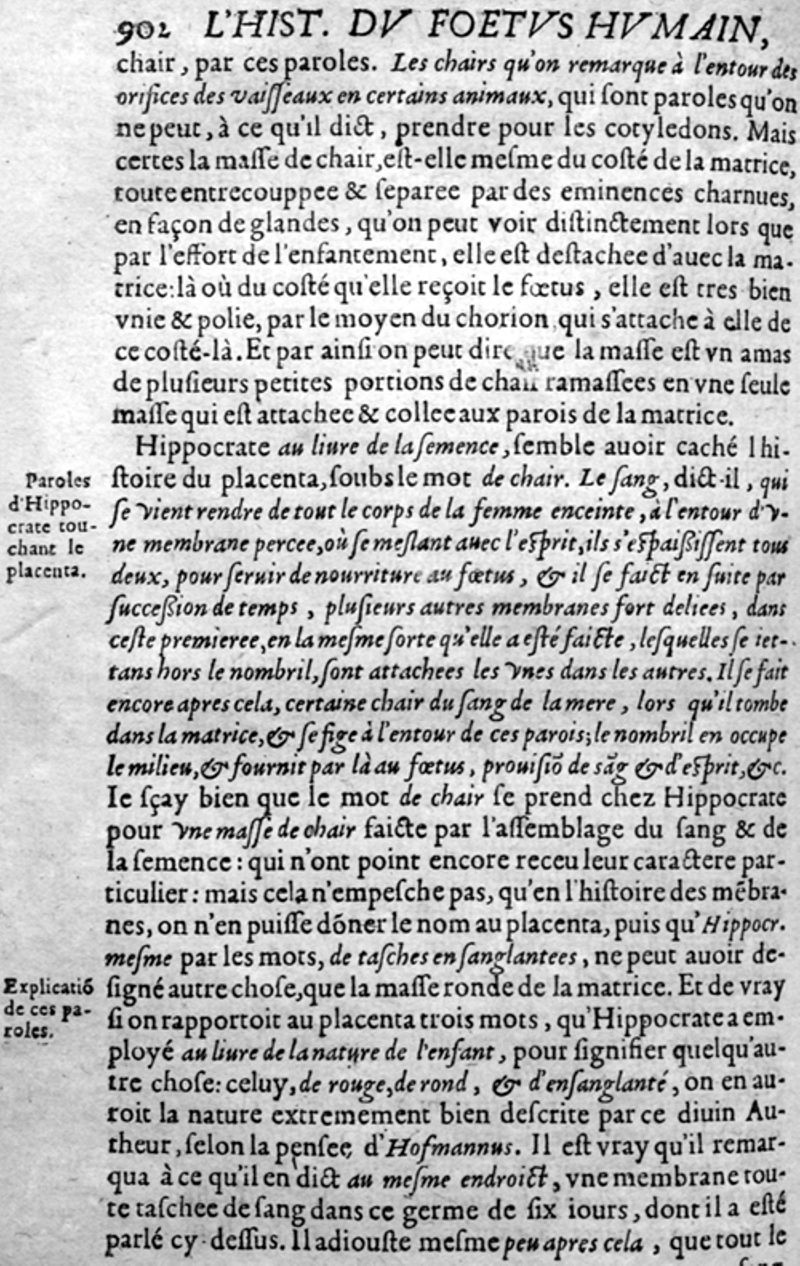 902 L'HIST. DV FOETVS HVMAIN,
chair, par ces paroles. Les chairs qu'on remarque à l'entour des
orifices des vaiſſeaux en certains animaux, qui ſont paroles qu'on
ne peut, à ce qu'il dict, prendre pour les cotyledons. Mais
certes la maſſe de chair, eſt-elle meſme du coſté de la matrice,
toute entrecouppee & ſeparee par des eminences charnues,
en façon de glandes, qu'on peut voir diſtinctement lors que
par l'effort de l'enfantement, elle eſt deſtachee d'auec la ma-
trice: là où du coſté qu'elle reçoit le fœtus, elle eſt tres bien
vnie & polie, par le moyen du chorion qui s'attache à elle de
ce coſté-là. Et par ainſi on peut dire que la maſſe eſt vn amas
de pluſieurs petites portions de chair ramaſſees en vne ſeule
maſſe qui eſt attachee & collee aux parois de la matrice.
Hippocrate au liure de la ſemence, ſemble auoir caché l'hi-
ſtoire du placenta, ſoubs le mot de chair. Le ſang, dict-il, qui
ſe vient rendre de tout le corps de la femme enceinte, à l'entour d'v-
ne membrane percee, où ſe meſlant auec l'eſprit, ils s'eſpaiſiſſent tous
deux, pour ſeruir de nourriture au fœtus, & il ſe faict en ſuite par
ſucceſſion de temps, pluſieurs autres membranes fort deliees, dans
ceſte premieree, en la meſme ſorte qu'elle a eſté faicte, leſquelles ſe iet-
tans hors le nombril, ſont attachees les vnes dans les autres. Il ſe fait
encore apres cela, certaine chair du ſang de la mere, lors qu'il tombe
dans la matrice, & ſe fige à l'entour de ces parois; le nombril en occupe
le milieu, & fournit par là au fœtus, prouiſiō de sāg & d'eſprit, &c.
Ie ſçay bien que le mot de chair ſe prend chez Hippocrate
pour vne maſſe de chair faicte par l'aſſemblage du ſang & de
la ſemence: qui n'ont point encore receu leur caractere par-
ticulier: mais cela n'empeſche pas, qu'en l'hiſtoire des mēbra-
nes, on n'en puiſſe dōner le nom au placenta, puis qu'Hippocr.
meſme par les mots, de taſches enſanglantees, ne peut auoir de-
ſigné autre choſe, que la maſſe ronde de la matrice. Et de vray
ſi on rapportoit au placenta trois mots, qu'Hippocrate a em-
ployé au liure de la nature de l'enfant, pour ſignifier quelqu'au-
tre choſe: celuy, de rouge, de rond, & d'enſanglanté, on en au-
roit la nature extremement bien deſcrite par ce diuin Au-
theur, ſelon la penſee d'Hofmannus. Il eſt vray qu'il remar-
qua à ce qu'il en dict au meſme endroict, vne membrane tou-
te taſchee de ſang dans ce germe de ſix iours, dont il a eſté
parlé cy deſſus. Il adiouſte meſme peu apres cela, que tout le
Paroles
d'Hippo-
crate tou-
chant le
placenta.
Explicatiō
de ces pa-
roles.